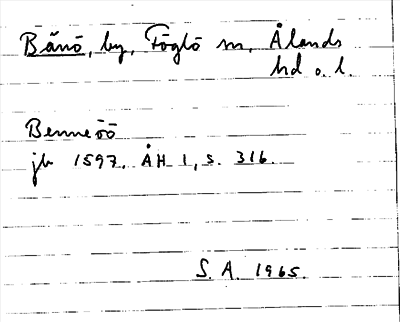 Bänö, by, Föglö sn, Ålands
hd o. l.
Benneöö
jb 1597. ÅH 1, s. 316.
S. A. 1965.